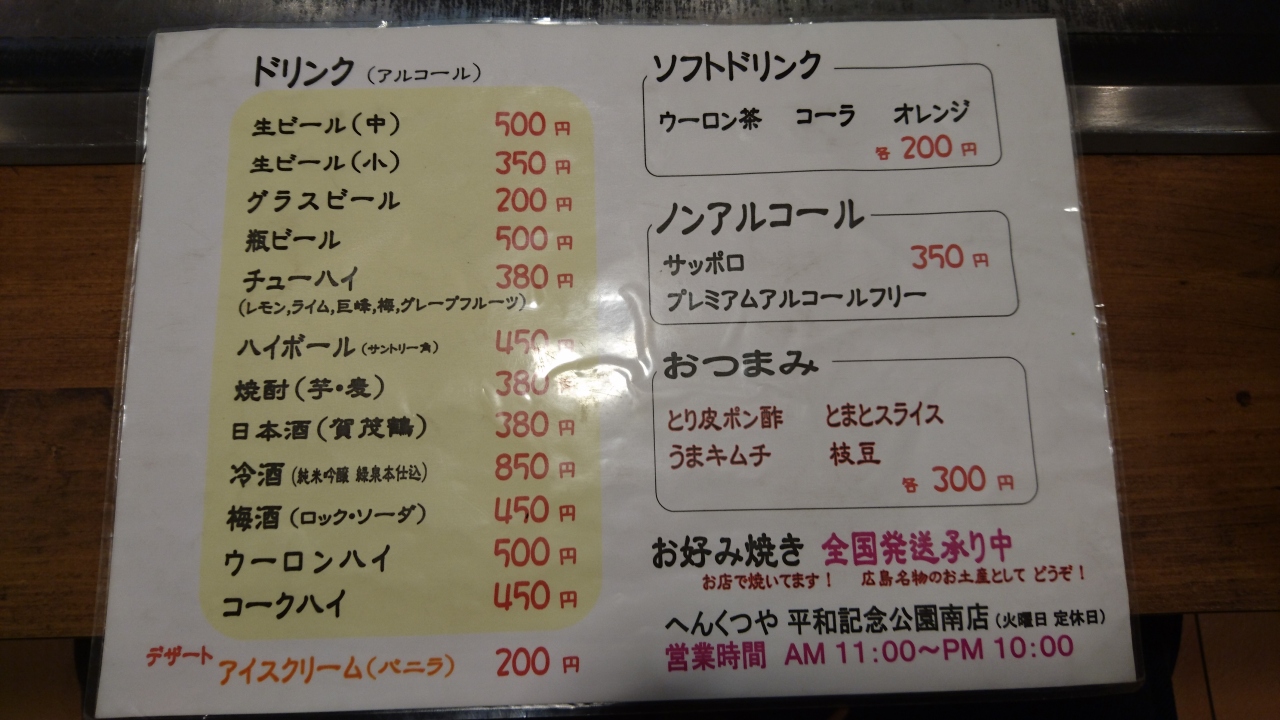 ドリンク（アルコール）
生ビール（中） 500円
生ビール（小） 350円
グラスビール 200円
瓶ビール 500円
チューハイ 380円
（レモン,ライム,巨峰,梅,グレープフルーツ）
ハイボール（サントリー角） 450円
焼酎（芋・麦） 380円
日本酒（賀茂鶴） 380円
冷酒（純米吟醸 緑泉本仕込） 850円
梅酒（ロック・ソーダ） 450円
ウーロンハイ 500円
コークハイ 450円
デザート アイスクリーム（バニラ） 200円
ソフトドリンク
ウーロン茶 コーラ オレンジ
各200円
ノンアルコール
サッポロ 350円
プレミアムアルコールフリー
おつまみ
とり皮ポン酢 とまとスライス
うまキムチ 枝豆
各300円
お好み焼き 全国発送承り中
お店で焼いてます！ 広島名物のお土産として どうぞ！
へんくつや 平和記念公園南店（火曜日 定休日）
営業時間 AM 11:00～PM 10:00